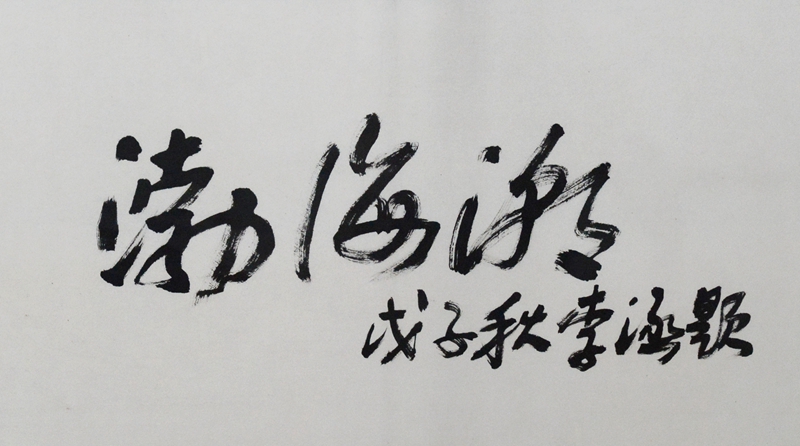 渤海潮
戊子秋李涵题